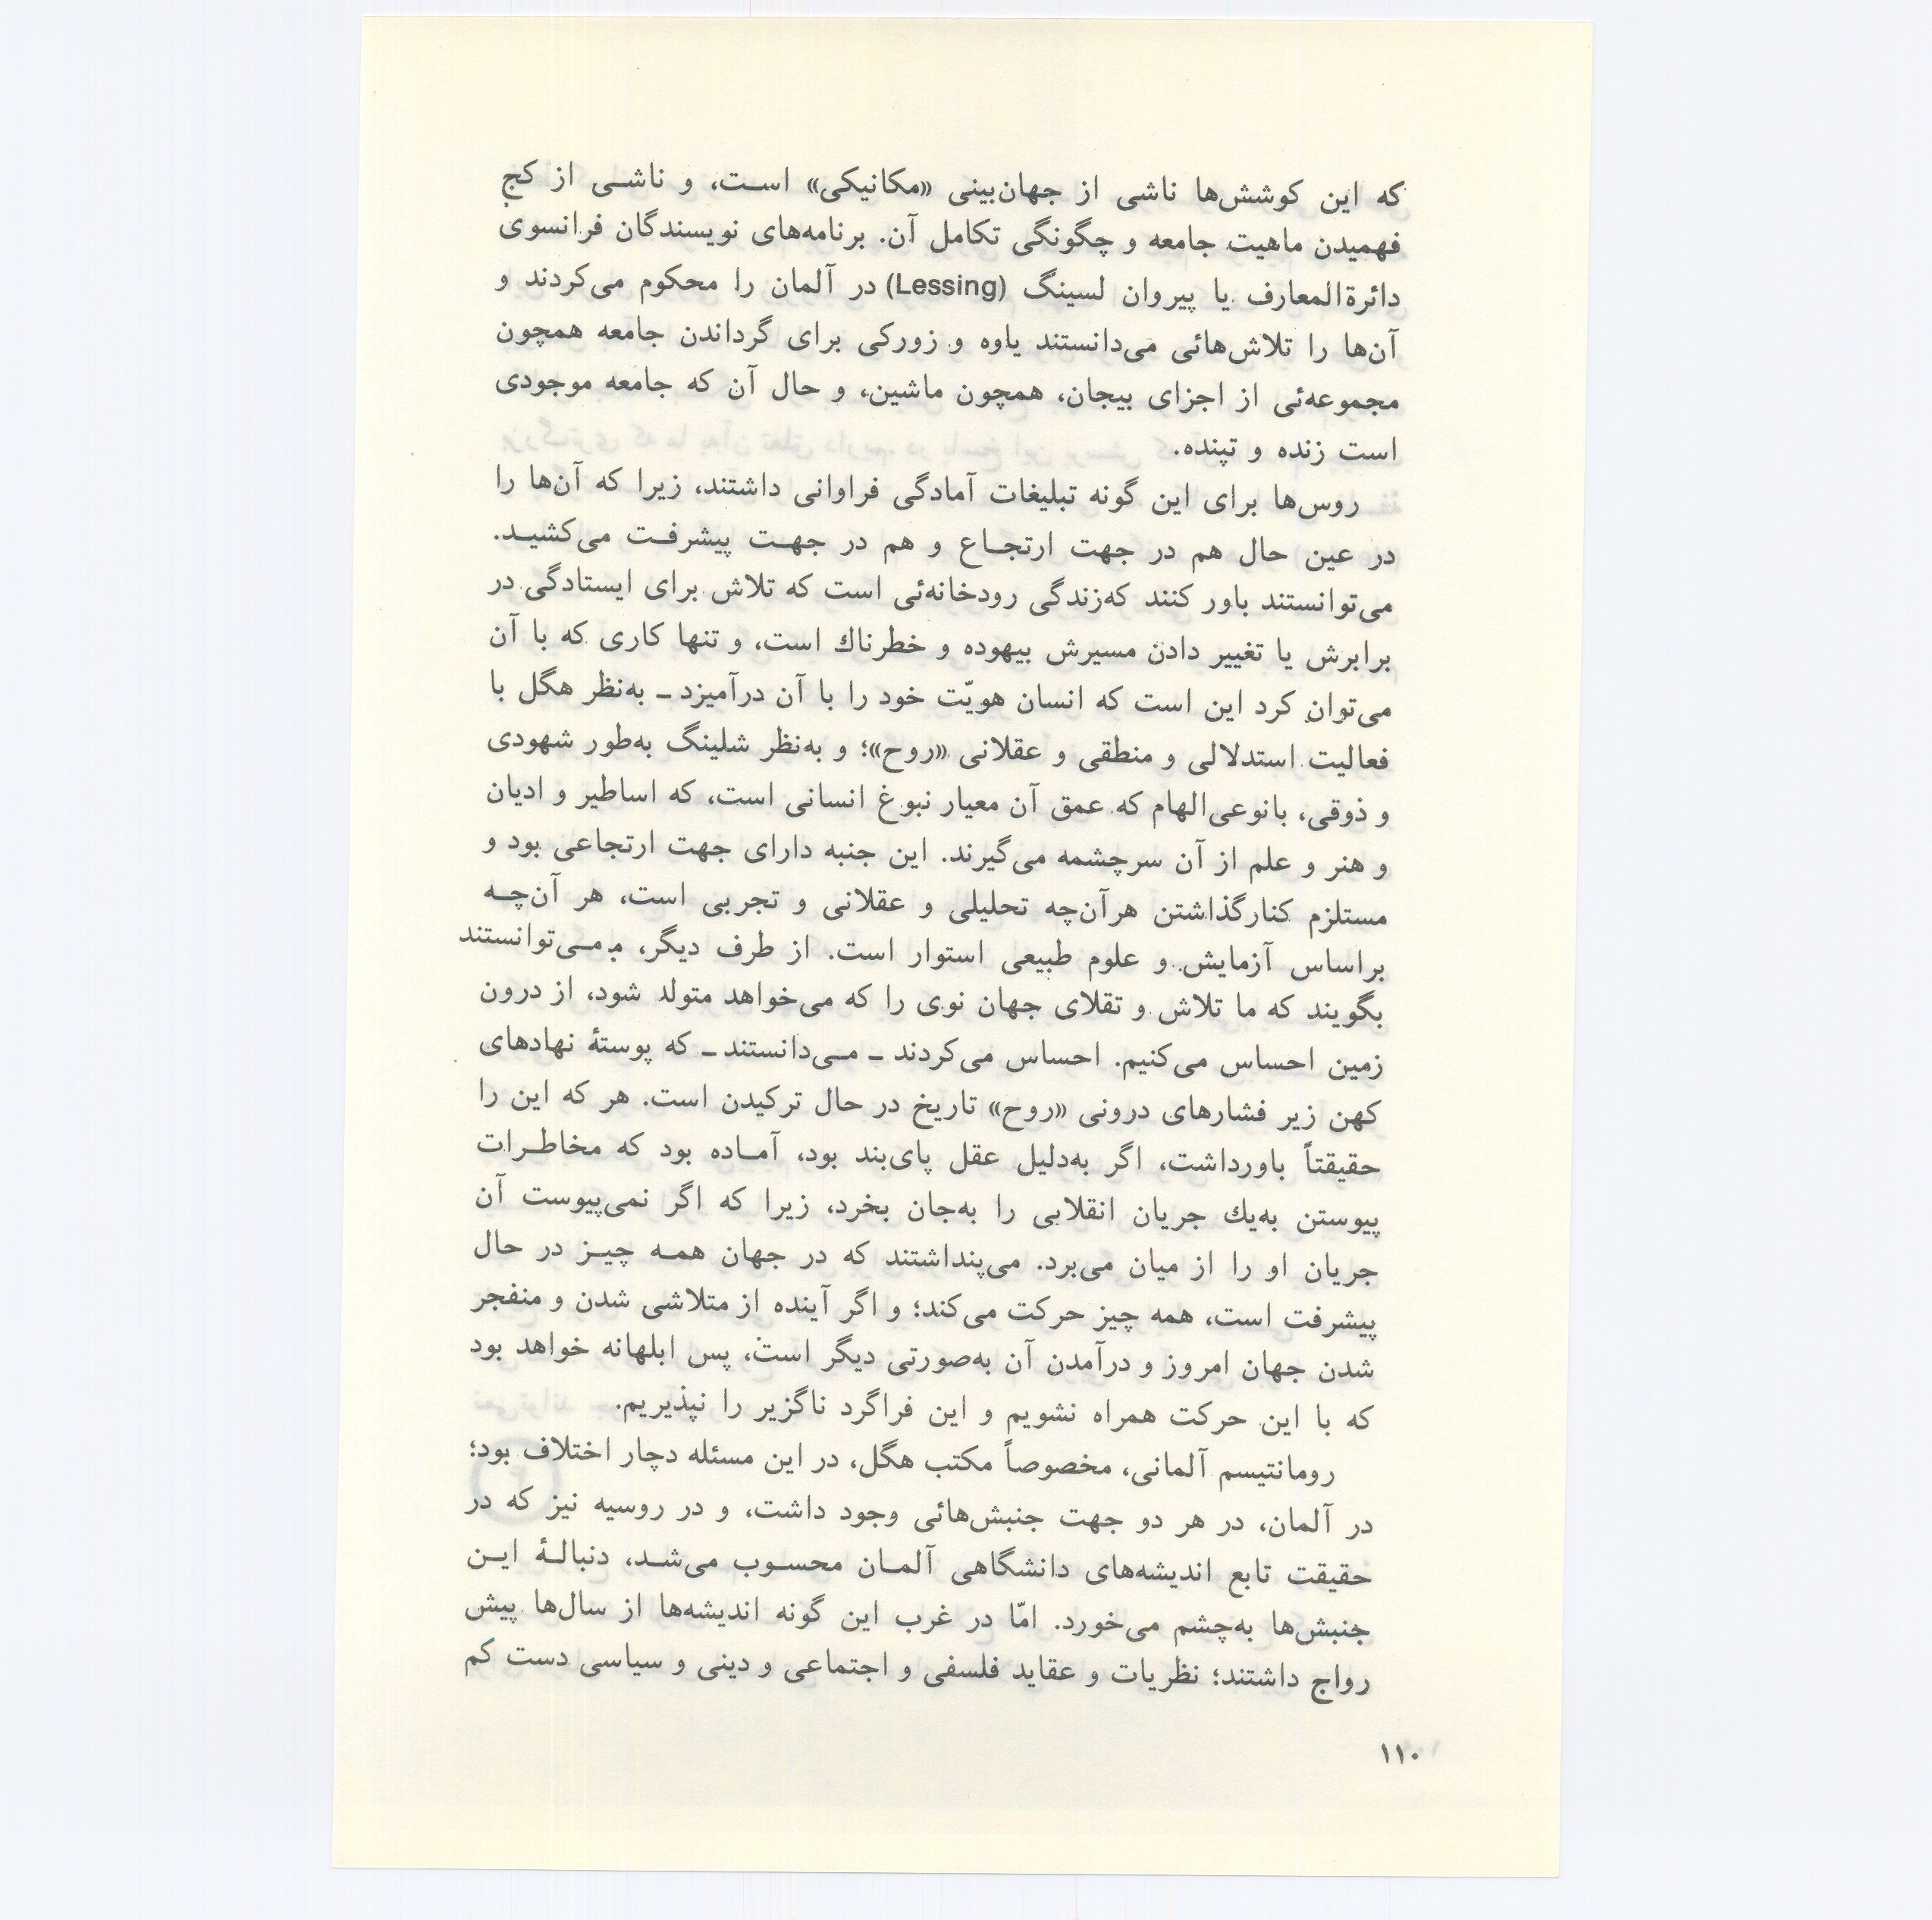 که این کوشش‌ها ناشی از جهان‌بینی «مکانیکی» است، و ناشی از کج
فهمیدن ماهیت جامعه و چگونگی تکامل آن. برنامه‌های نویسندگان فرانسوی
دائرةالمعارف یا پیروان لسینگ (Lessing) در آلمان را محکوم می‌کردند و
آن‌ها را تلاش‌هائی می‌دانستند یاوه و زورکی برای گرداندن جامعه همچون
مجموعه‌ئی از اجزای بیجان، همچون ماشین، و حال آن که جامعه موجودی
است زنده و تپنده.
روس‌ها برای این گونه تبلیغات آمادگی فراوانی داشتند، زیرا که آن‌ها را
در عین حال هم در جهت ارتجاع و هم در جهت پیشرفت می‌کشید.
می‌توانستند باور کنند که‌زندگی رودخانه‌ئی است که تلاش برای ایستادگی در
برابرش یا تغییر دادن مسیرش بیهوده و خطرناك است، و تنها کاری که با آن
می‌توان کرد این است که انسان هویّت خود را با آن درآمیزد ـ به‌نظر هگل با
فعالیت استدلالی و منطقی و عقلانی «روح»؛ و به‌نظر شلینگ به‌طور شهودی
و ذوقی، بانوعی‌الهام که عمق آن معیار نبوغ انسانی است، که اساطیر و ادیان
و هنر و علم از آن سرچشمه می‌گیرند. این جنبه دارای جهت ارتجاعی بود و
مستلزم کنارگذاشتن هرآن‌چه تحلیلی و عقلانی و تجربی است، هر آن‌چه
براساس آزمایش و علوم طبیعی استوار است. از طرف دیگر، می‌توانستند
بگویند که ما تلاش و تقلای جهان نوی را که می‌خواهد متولد شود، از درون
زمین احساس می‌کنیم. احساس می‌کردند ـ می‌دانستند ـ که پوستهٔ نهادهای
کهن زیر فشارهای درونی «روح» تاریخ در حال ترکیدن است. هر که این را
حقیقتاً باورداشت، اگر به‌دلیل عقل پای‌بند بود، آماده بود که مخاطرات
پیوستن به‌یك جریان انقلابی را به‌جان بخرد، زیرا که اگر نمی‌پیوست آن
جریان او را از میان می‌برد. می‌پنداشتند که در جهان همه چیز در حال
پیشرفت است، همه چیز حرکت می‌کند؛ و اگر آینده از متلاشی شدن و منفجر
شدن جهان امروز و درآمدن آن به‌صورتی دیگر است، پس ابلهانه خواهد بود
که با این حرکت همراه نشویم و این فراگرد ناگزیر را نپذیریم.
رومانتیسم آلمانی، مخصوصاً مکتب هگل، در این مسئله دچار اختلاف بود؛
در آلمان، در هر دو جهت جنبش‌هائی وجود داشت، و در روسیه نیز که در
حقیقت تابع اندیشه‌های دانشگاهی آلمان محسوب می‌شد، دنبالهٔ این
جنبش‌ها به‌چشم می‌خورد. امّا در غرب این گونه اندیشه‌ها از سال‌ها پیش
رواج داشتند؛ نظریات و عقاید فلسفی و اجتماعی و دینی و سیاسی دست کم
۱۱۰